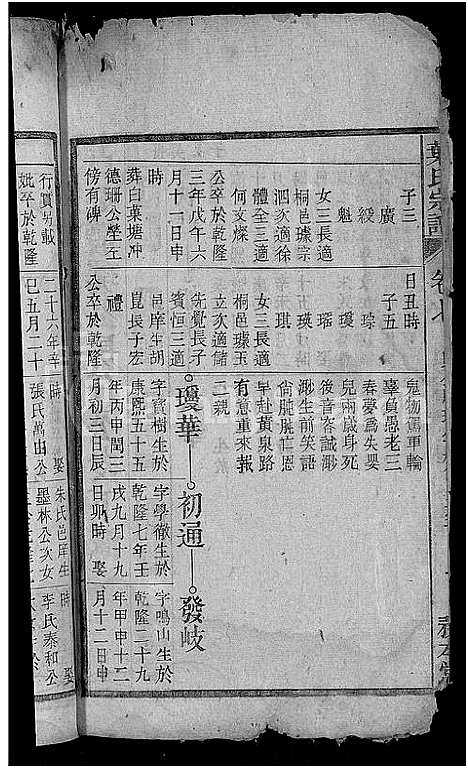 葉氏宗譜
卷七
子三
廣
毅
魁
女三長適
桐邑璩宗
泗次適徐
體全三適
何文燦
公卒於乾隆
三年戊午六
月十一日申
時
葬白葉塘冲
德珊公塋左
傍有碑
日丑時
子五
琮
瓊
瑤
瑛
琪
女三長適
桐邑璩玉
立次適儲
先覺長子
賓恒三適
邑庠生胡
崑長子宏
禮
公卒於乾隆
鬼物馬車輪
辜負愚老三
春夢爲失嬰
兒兩歲身死
後音容誠渺
渺生前笑語
尚朧朧亡恩
早赴黃泉路
有意重來報
二親
瓊華
初通
發岐
字寶樹生於
康熙五十五
年丙申閏三
月初三日辰
時
娶
張氏萬山公
字學徵生於
乾隆七年壬
戌九月十九
日卯時
娶
朱氏邑庠生
墨林公次女
字鳴山生於
乾隆二十九
年甲申十二
月十二日申
時
娶
李氏泰和公
行實另載
妣卒於乾隆
二十六年辛
巳五月二十